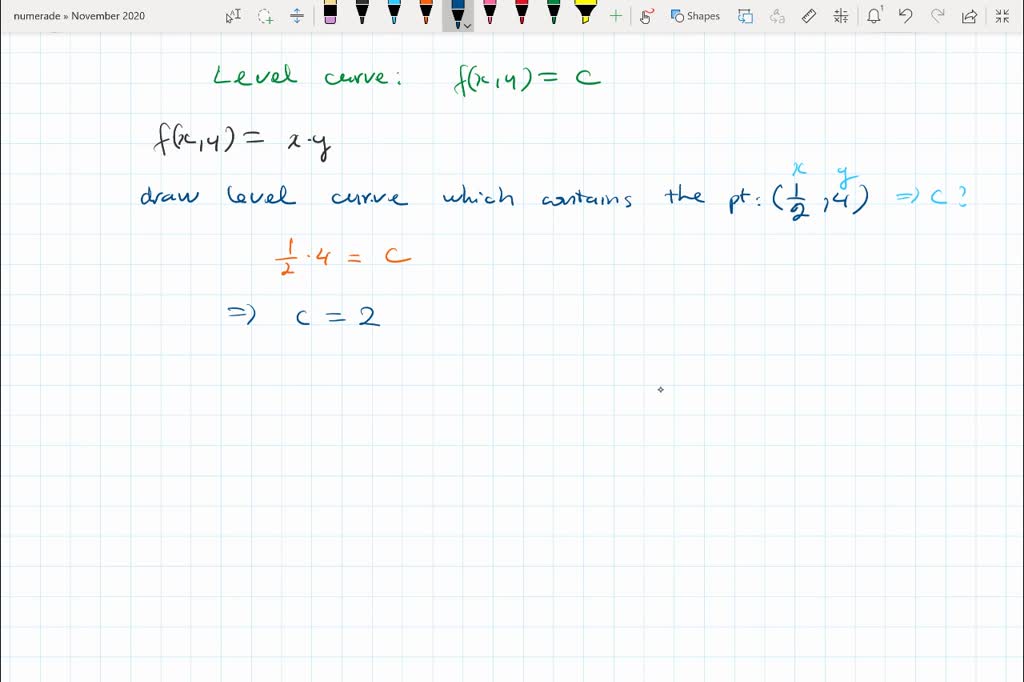 numerade » November 2020
Shapes
1
Level curve: f(x,y) = c
f(x,y) = x·y
x y
draw level curve which contains the pt: (1/2, 4) => c?
1/2 · 4 = c
=> c = 2